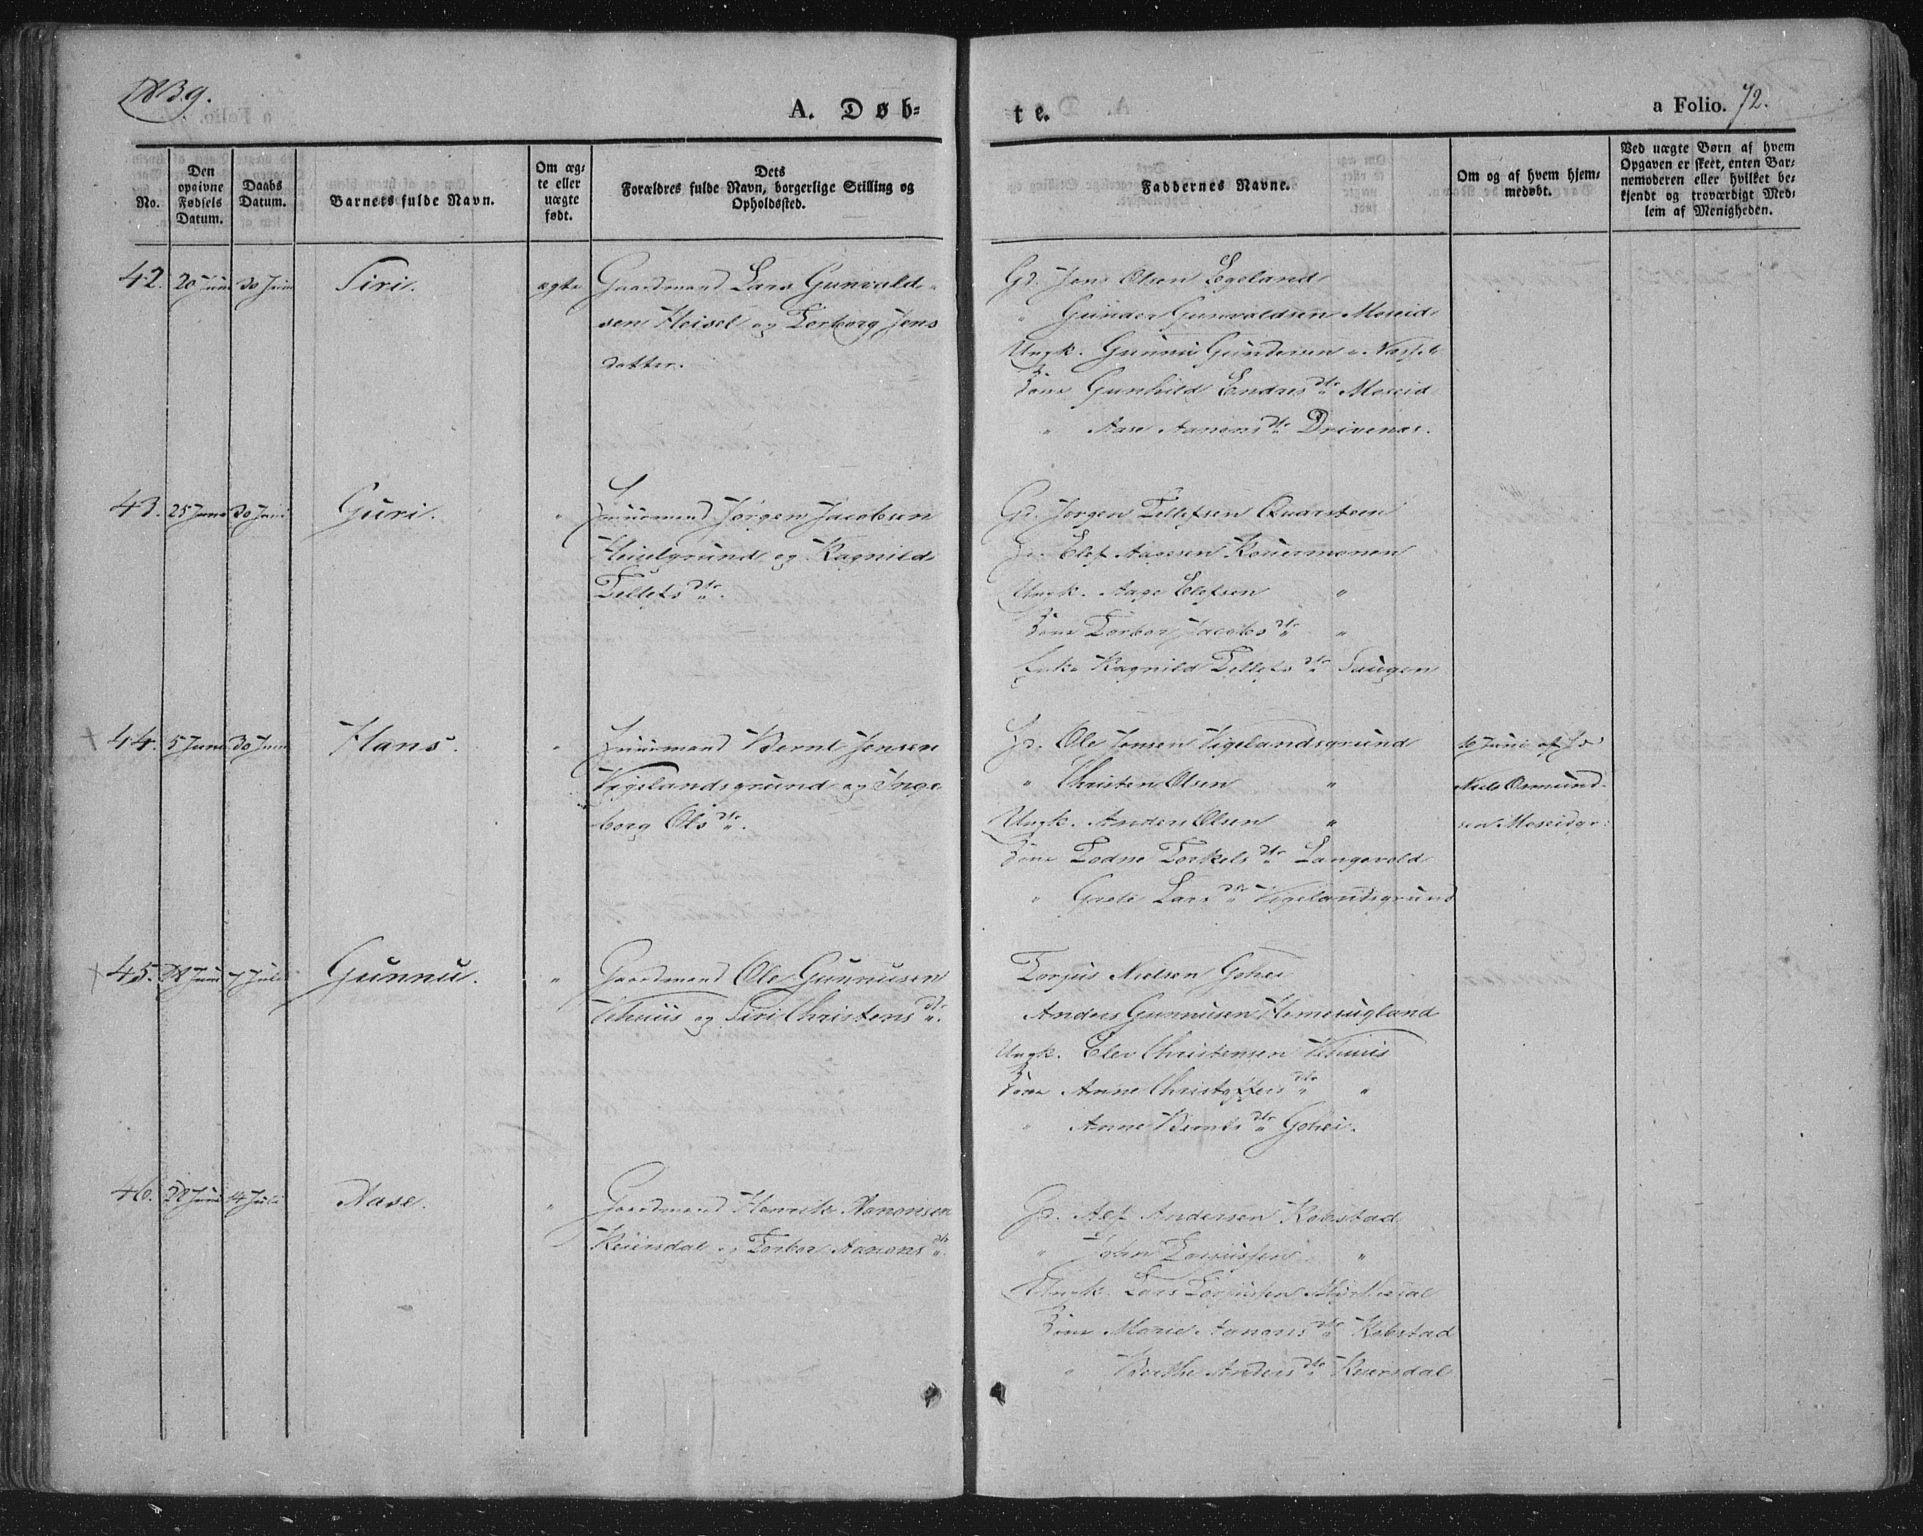 1839.
A. Døb-
te.
a Folio. 72.
No.
Den opgivne Fødsels Datum.
Daabs Datum.
Barnets fulde Navn.
Om ægte eller uægte født.
Dets Forældres fulde Navn, borgerlige Stilling og Opholdssted.
Faddernes Navne.
Om og af hvem hjemmedøbt.
Ved uægte Børn af hvem Opgaven er skeet, enten Barnemoderen eller hvilket bekjendt og troværdigt Medlem af Menigheden.
42. 20 Juni 30 Juni Siri. ægte Gaardmand Lars Gunvald-
sen Heisel og Torborg Jens
datter.
Gd. Jens Olsen Egeland
" Gunder Gunvaldsen Moseid
Ungk. Gunni Gundersen
Kone Gunhild Endres dtr Moseid
" Aase Aanons dtr Drivenæs.
43. 25 Juni 30 Juni Guri. " Huusmand Jørgen Jacobsen
Heiselgrund og Ragnild
Tellefs dtr.
Gd. Jørgen Tellefsen Quarsteen
Elef Aagesen
Ungk. Aage Elefsen "
Kone Torbor Jacobs dtr "
Enke Ragnild Tellefs dtr Saugen
+ 44. 5 Juni 30 Juni Hans. " Huusmand Bernt Jensen
Vigelandsgrund og Inge-
borg Ols dtr.
Ole Jensen Vigelandsgrund
" Christen Olsen "
Ungk. Anders Olsen "
Kone Todne Torkels dtr Langevold
" Grete Lars dtr Vigelandsgrund
Juni af
Niels Osmund-
sen Moseidgr:
+ 45. 28 Juni 7 Juli Gunnu. " Gaardmand Ole Gunnusen
Vehuus og Siri Christens dtr.
Torjus Nielsen Gohei
Anders Gunnusen
Ungk. Elev Christensen Vehuus
Kone Anne Christoffers dtr "
" Anne Bernts dtr Gohei.
46. 28 Juni 14 Juli Aase. " Gaardmand Henrik Aanonsen
Keiersdal og Torbor Aanons dtr.
Gd. Alf Andersen Robstad
" John Torjussen "
Ungk. Lars Torjussen
Kone Marie Aanons dtr Robstad
" Berthe Anders dtr Keiersdal